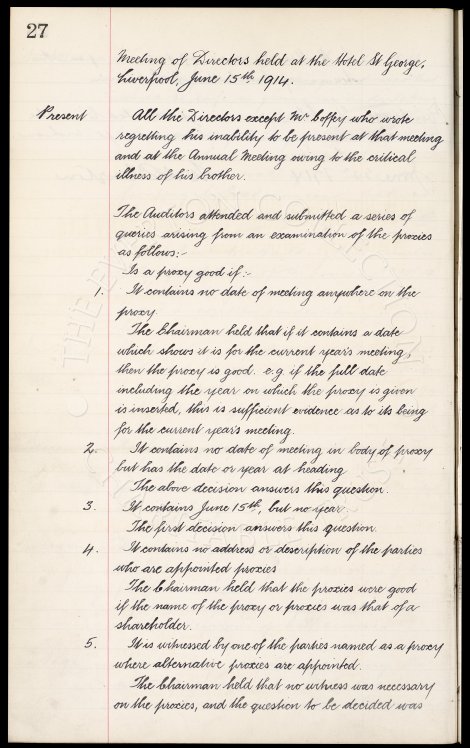 27
Meeting of Directors held at the Hotel St George,
Liverpool, June 15th 1914.
Present
All the Directors except Mr Coffey who wrote
regretting his inability to be present at that meeting
and at the Annual Meeting owing to the critical
illness of his brother.
The Auditors attended and submitted a series of
queries arising from an examination of the proxies
as follows:-
Is a proxy good if:-
1. It contains no date of meeting anywhere on the
proxy.
The Chairman held that if it contains a date
which shows it is for the current year's meeting,
then the proxy is good. e.g. if the full date
including the year on which the proxy is given
is inserted, this is sufficient evidence as to its being
for the current year's meeting.
2. It contains no date of meeting in body of proxy
but has the date or year at heading
The above decision answers this question.
3. It contains June 15th, but no year.
The first decision answers this question.
4. It contains no address or description of the parties
who are appointed proxies
The Chairman held that the proxies were good
if the name of the proxy or proxies was that of a
shareholder.
5. It is witnessed by one of the parties named as a proxy
where alternative proxies are appointed.
The Chairman held that no witness was necessary
on the proxies, and the question to be decided was